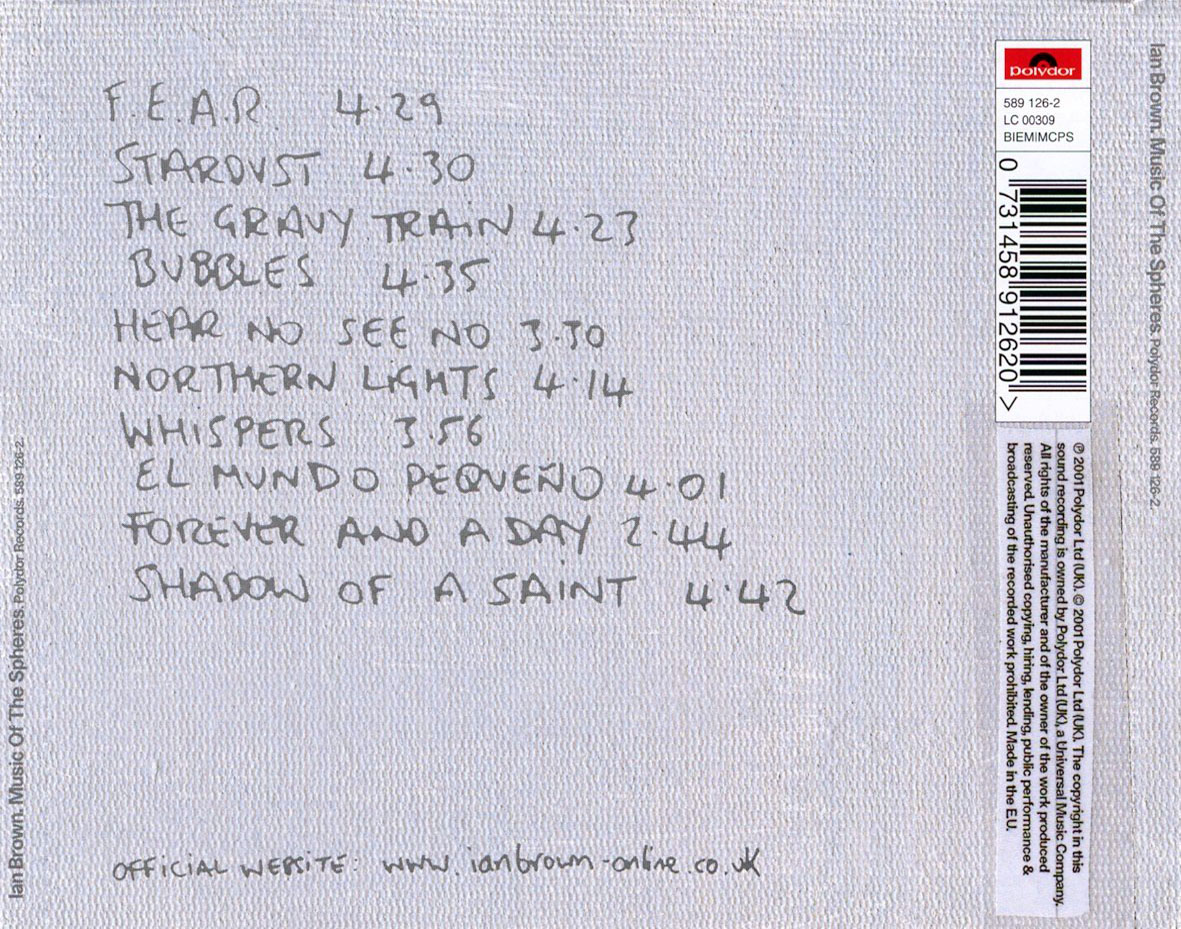 F.E.A.R. 4.29
STARDUST 4.30
THE GRAVY TRAiN 4.23
BUBBLES 4.35
HEAR NO SEE NO 3.30
NORTHERN LiGHTS 4.14
WHiSPERS 3.56
EL MUNDO PEQUEÑO 4.01
FOREVER AND A DAY 2.44
SHADOW OF A SAiNT 4.42
OFFiCiAL WEBSiTE: www.ianbrown-online.co.uk
polydor
589 126-2
LC 00309
BIEM/MCPS
0 731458 912620 >
℗ 2001 Polydor Ltd (UK). © 2001 Polydor Ltd (UK). The copyright in this
sound recording is owned by Polydor Ltd (UK), a Universal Music Company.
All rights of the manufacturer and of the owner of the work produced
reserved. Unauthorised copying, hiring, lending, public performance &
broadcasting of the recorded work prohibited. Made in the E.U.
Ian Brown. Music Of The Spheres. Polydor Records. 589 126-2.
Ian Brown. Music Of The Spheres. Polydor Records. 589 126-2.